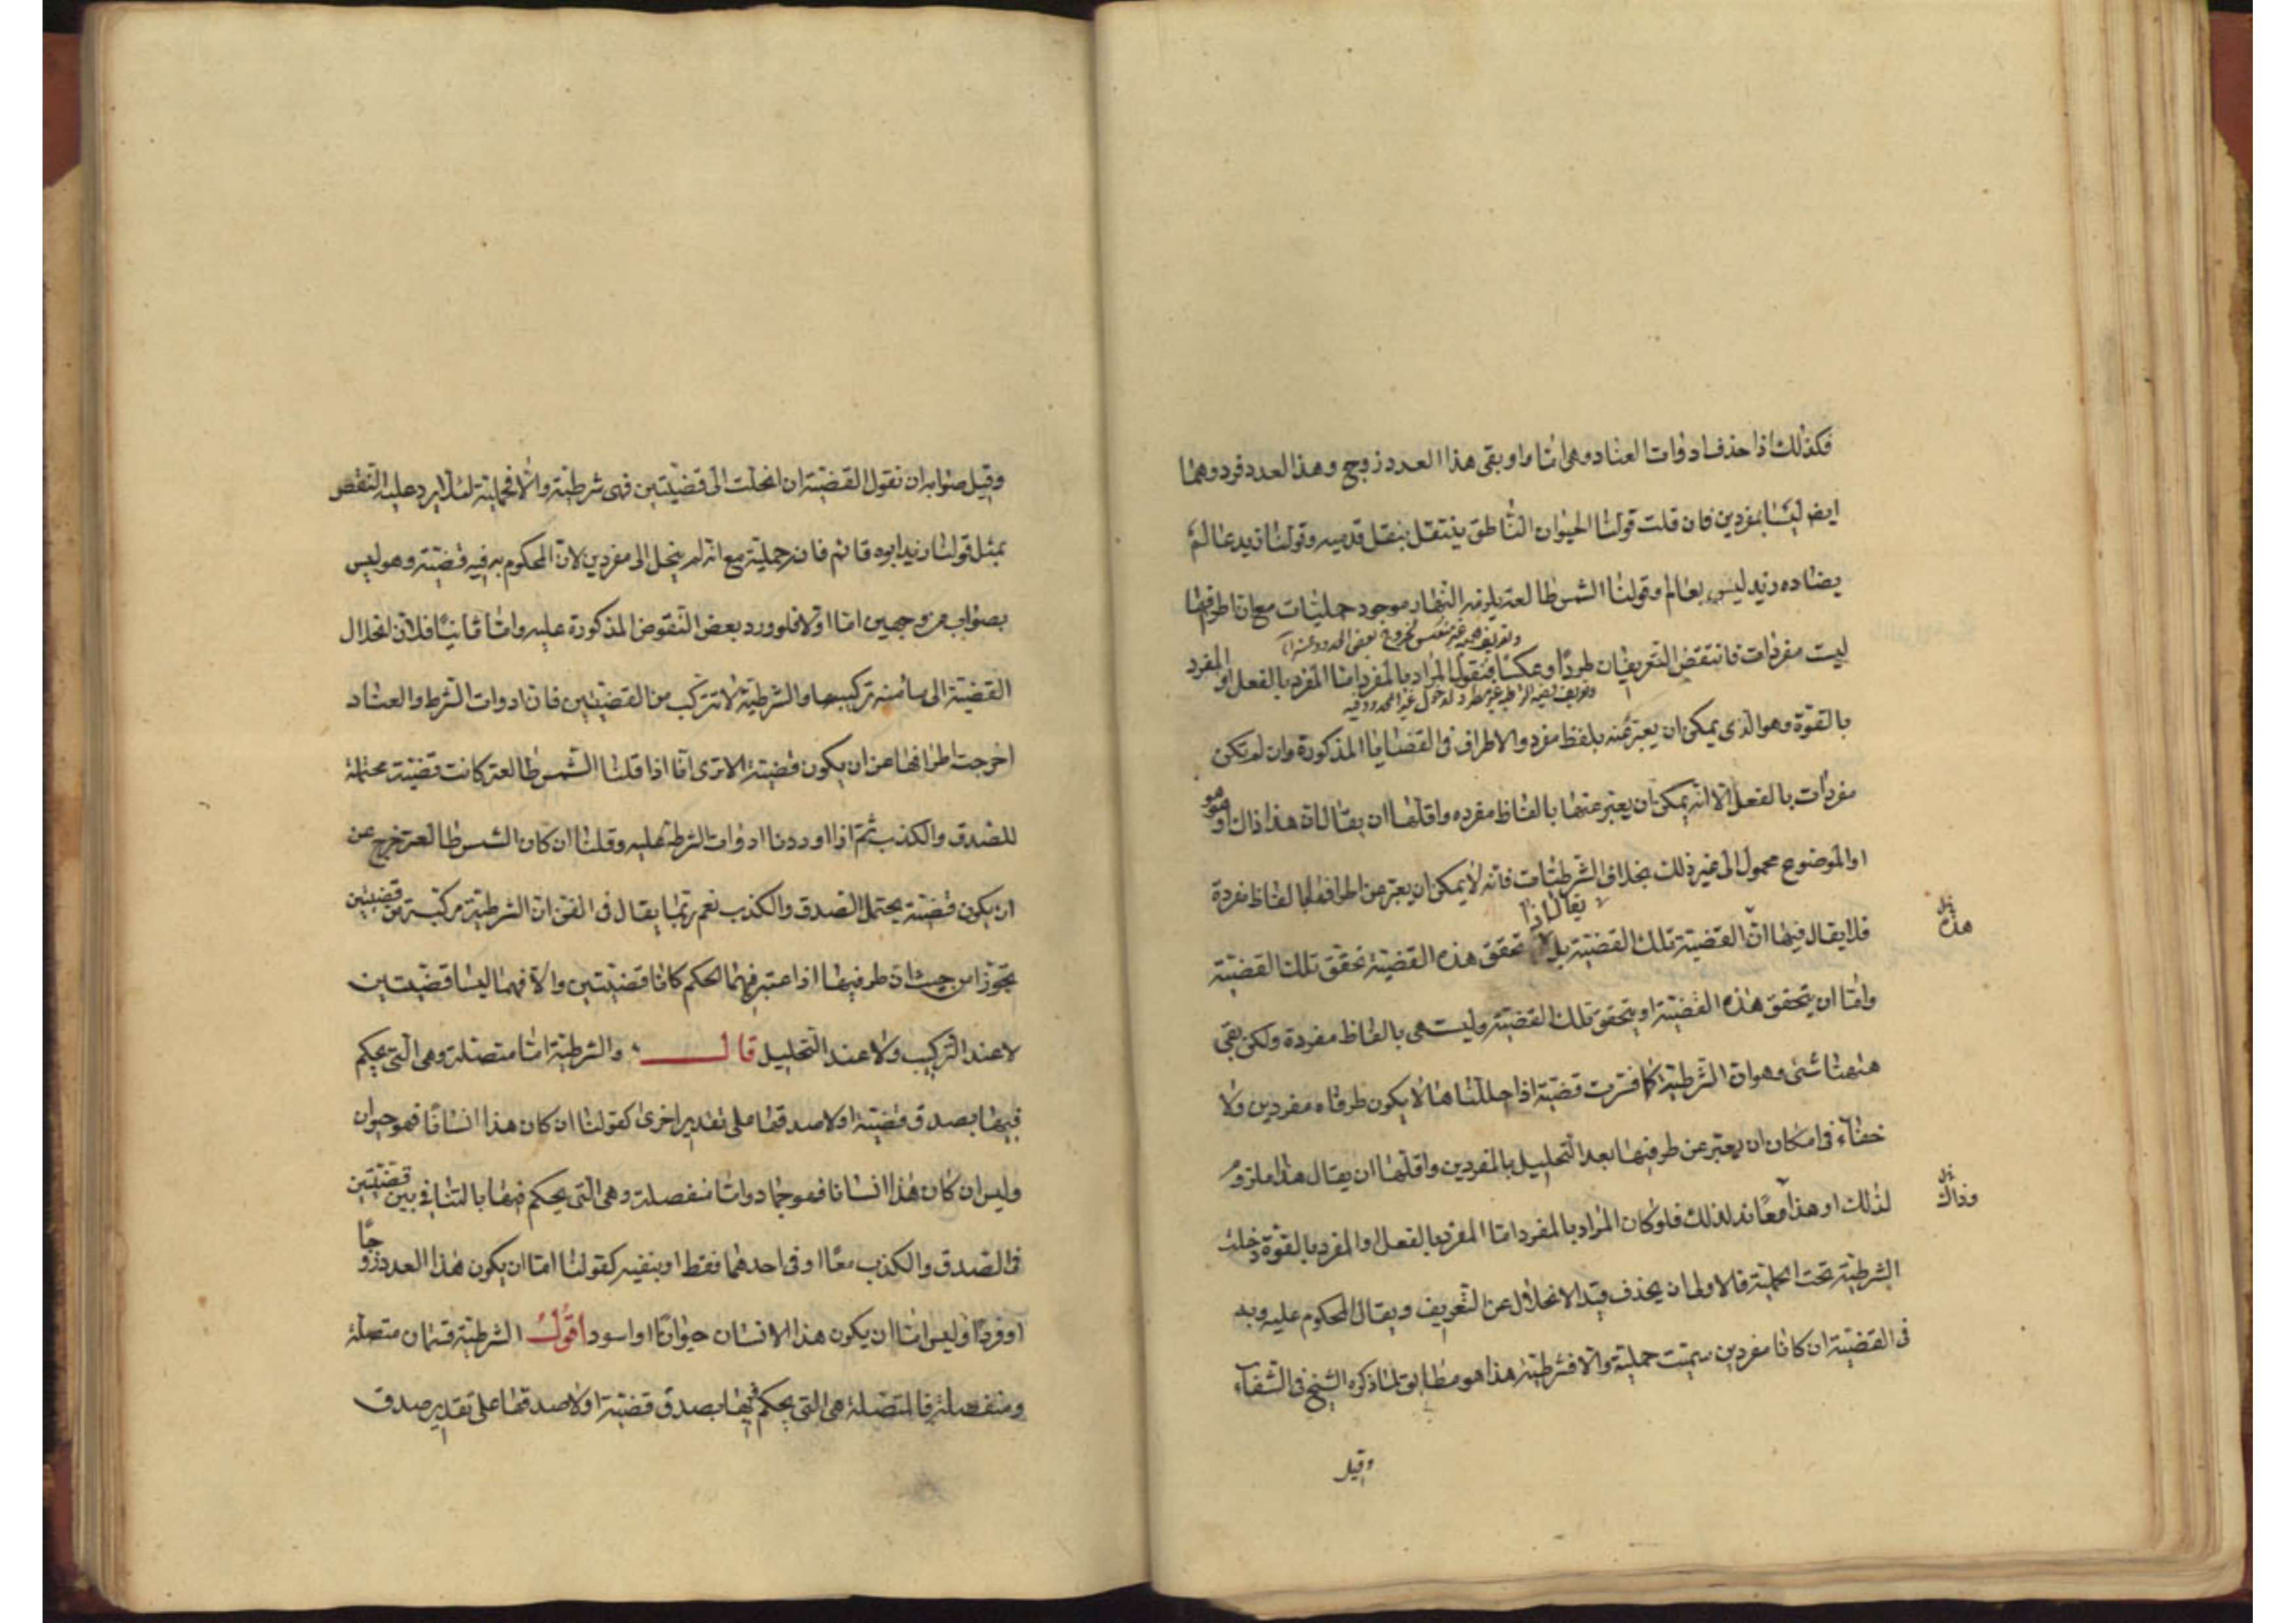 فكذلك اذا حذف ادوات العناد وهى اما واو بقى هذا العدد زوج وهذا العدد فرد وهما
ايضا ليسا بمفردين فان قلت قولنا الحيوان الناطق ينتقل بنقل قدميه وقولنا زيد عالم
يضاده زيد ليس بعالم وقولنا الشمس طالعة يلزمه النهار موجود حمليات مع ان اطرافها
وتعريف الحملية غير منعكس لخروج بعض الحدود عنه
ليست مفردات فانتقض التعريفان طردا وعكسا فنقول المراد بالمفرد اما المفرد بالفعل او المفرد
وتعريف الشرطية غير مطرد لدخول غير المحدود فيه
بالقوة وهو الذى يمكن ان يعبر عنه بلفظ مفرد والاطراف فى القضايا المذكورة وان لم تكن
مفردات بالفعل الا انه يمكن ان يعبر عنها بالفاظ مفرده واقلها ان يقال ان هذا ذاك او هو هو
او الموضوع محمول الى غير ذلك بخلاف الشرطيات فانه لا يمكن ان يعبر عن اطرافها بالفاظ مفردة
يقال اذا
فلا يقال فيها ان القضية تلك القضية بل تحقق هذه القضية تحقق تلك القضية
هذه
واما ان يتحقق هذه القضية او يتحقق تلك القضية وليست هى بالفاظ مفردة ولكن بقى
ههنا شئ وهو ان الشرطية كما فسرت قضية اذا حللناها لا يكون طرفاه مفردين ولا
خفاء فى امكان ان يعبر عن طرفيها بعد التحليل بالمفردين واقلها ان يقال هذا ملزوم
لذلك او هذا معاند لذلك فلو كان المراد بالمفرد اما المفرد بالفعل او المفرد بالقوة دخلت
وذاك
الشرطية تحت الحملية فالاولى ان يحذف قيد الانحلال عن التعريف ويقال المحكوم عليه وبه
فى القضية ان كانا مفردين سميت حملية والا فشرطية هذا هو مطابق لما ذكره الشيخ فى الشفاء
وقيل
وقيل صوابه ان نقول القضية ان انحلت الى قضيتين فهى شرطية والا فحملية لئلا يرد عليه النقض
بمثل قولنا زيد ابوه قائم فانه حملية مع انه لم ينحل الى مفردين لان المحكوم به فيه قضية وهو ليس
بصواب من وجهين اما اولا فلورود بعض النقوض المذكورة عليه واما ثانيا فلان انحلال
القضية الى ما منه تركيبها والشرطية لا تتركب من القضيتين فان ادوات الشرط والعناد
اخرجت اطرافها عن ان يكون قضية الا ترى انا اذا قلنا الشمس طالعة كانت قضية محتملة
للصدق والكذب ثم اذا اوردنا ادوات الشرط عليه وقلنا ان كان الشمس طالعة خرج عن
ان يكون قضية يحتمل الصدق والكذب نعم ربما يقال فى الفن ان الشرطية مركبة من قضيتين
تجوزا من حيث ان طرفيها اذا اعتبر فيهما الحكم كانا قضيتين والا فهما ليسا قضيتين
لا عند التركيب ولا عند التحليل قال والشرطية اما متصلة وهى التى يحكم
فيها بصدق قضية او لا صدقها على تقدير اخرى كقولنا ان كان هذا انسانا فهو حيوان
وليس ان كان هذا انسانا فهو جماد واما منفصلة وهى التى يحكم فيها بالتنافى بين قضيتين
فى الصدق والكذب معا او فى احدهما فقط او بنفيه كقولنا اما ان يكون هذا العدد زوجا
او فردا وليس اما ان يكون هذا الانسان حيوانا او اسود اقول الشرطية قسمان متصلة
ومنفصلة فالمتصلة هى التى يحكم فيها بصدق قضية او لا صدقها على تقدير صدق